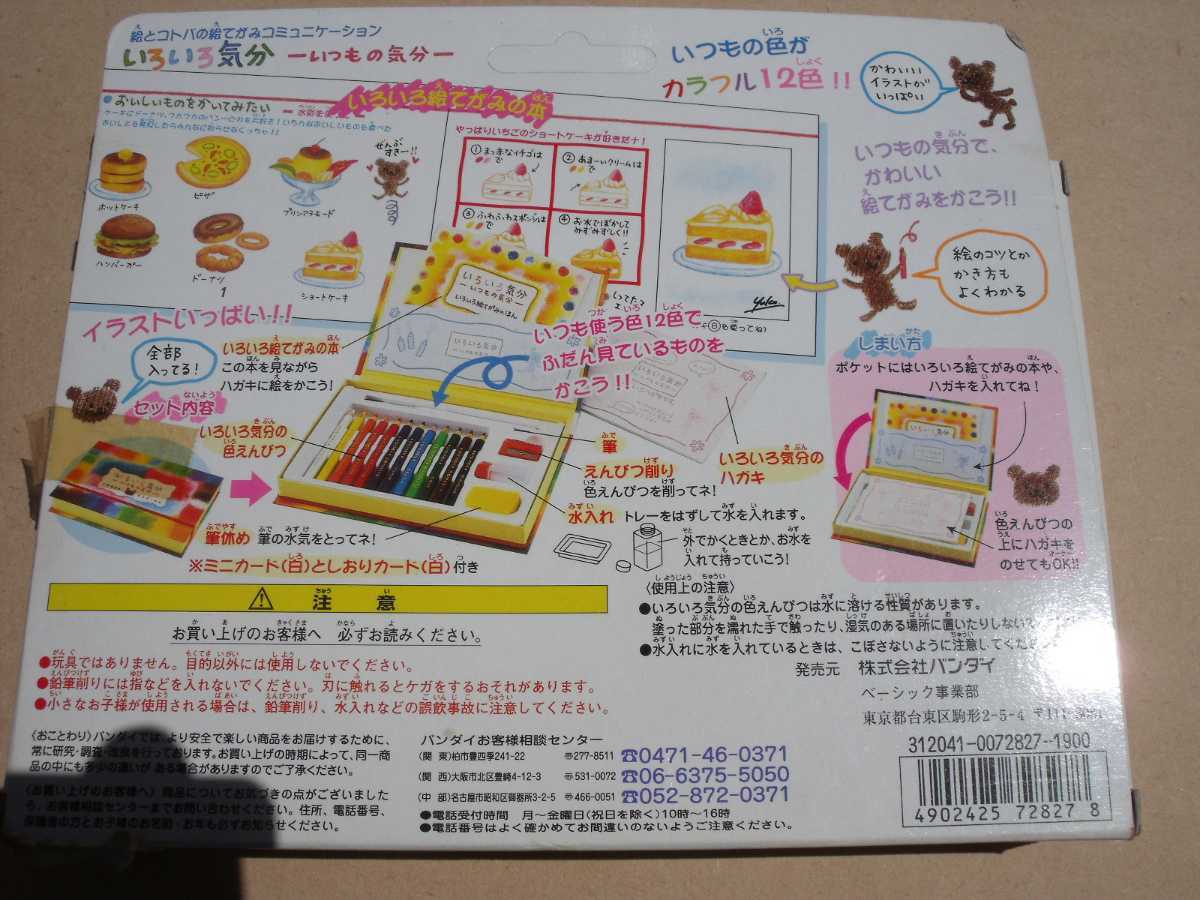 絵とコトバの絵てがみコミュニケーション
いろいろ気分 ーいつもの気分ー
いつもの色が
カラフル12色!!
かわいい
イラストが
いっぱい
いつもの気分で、
かわいい
絵てがみをかこう!!
絵のコツとか
かき方も
よくわかる
いろいろ絵てがみの本
●おいしいものをかいてみたい
ぜんぶ
すきー!!
ホットケーキ
ピザ
プリンアラモード
ハンバーガー
ドーナツ
ショートケーキ
1
やっぱりいちごのショートケーキが好きだナ!
①まっ赤なイチゴは
で
②あまーいクリームは
で
③ふわふわスポンジは
で
④お水でぼかして
みずみずしく!!
いろいろ気分
ーいつもの気分ー
いろいろ絵てがみのほん
イラストいっぱい!!
全部
入ってる!
いろいろ絵てがみの本
この本を見ながら
ハガキに絵をかこう!
いつも使う色12色で
ふだん見ているものを
かこう!!
セット内容
いろいろ気分の
色えんぴつ
筆
えんぴつ削り
色えんぴつを削ってネ!
水入れ トレーをはずして水を入れます。
外でかくときとか、お水を
入れて持っていこう!
いろいろ気分の
ハガキ
筆休め 筆の水気をとってネ!
※ミニカード(白)としおりカード(白)付き
しまい方
ポケットにはいろいろ絵てがみの本や、
ハガキを入れてね!
色えんぴつの
上にハガキを
のせてもOK!!
注意
お買い上げのお客様へ 必ずお読みください。
●玩具ではありません。目的以外には使用しないでください。
●鉛筆削りには指などを入れないでください。刃に触れるとケガをするおそれがあります。
●小さなお子様が使用される場合は、鉛筆削り、水入れなどの誤飲事故に注意してください。
〈使用上の注意〉
●いろいろ気分の色えんぴつは水に溶ける性質があります。
塗った部分を濡れた手で触ったり、湿気のある場所に置いたりしないで
●水入れに水を入れているときは、こぼさないように注意してくだ
発売元 株式会社バンダイ
ベーシック事業部
東京都台東区駒形2-5-4
〈おことわり〉バンダイでは、より安全で楽しい商品をお届けするために、
常に研究・調査・改良を行っております。お買い上げの時期によって、同一商
品の中にも多少の違いがある場合がありますのでご了承ください。
〈お買い上げのお客様へ〉商品についてお気づきの点がございました
ら、お客様相談センターまでお問い合わせください。住所、電話番号、
保護者の方とお子様のお名前・お年も必ずお知らせください。
バンダイお客様相談センター
(関 東)柏市豊四季241-22 〒277-8511 ☎0471-46-0371
(関 西)大阪市北区豊崎4-12-3 〒531-0072 ☎06-6375-5050
(中 部)名古屋市昭和区御器所3-2-5 〒466-0051 ☎052-872-0371
●電話受付時間 月〜金曜日(祝日を除く)10時〜16時
●電話番号はよく確かめてお間違いのないようご注意ください。
312041-0072827-1900
4902425 72827 8